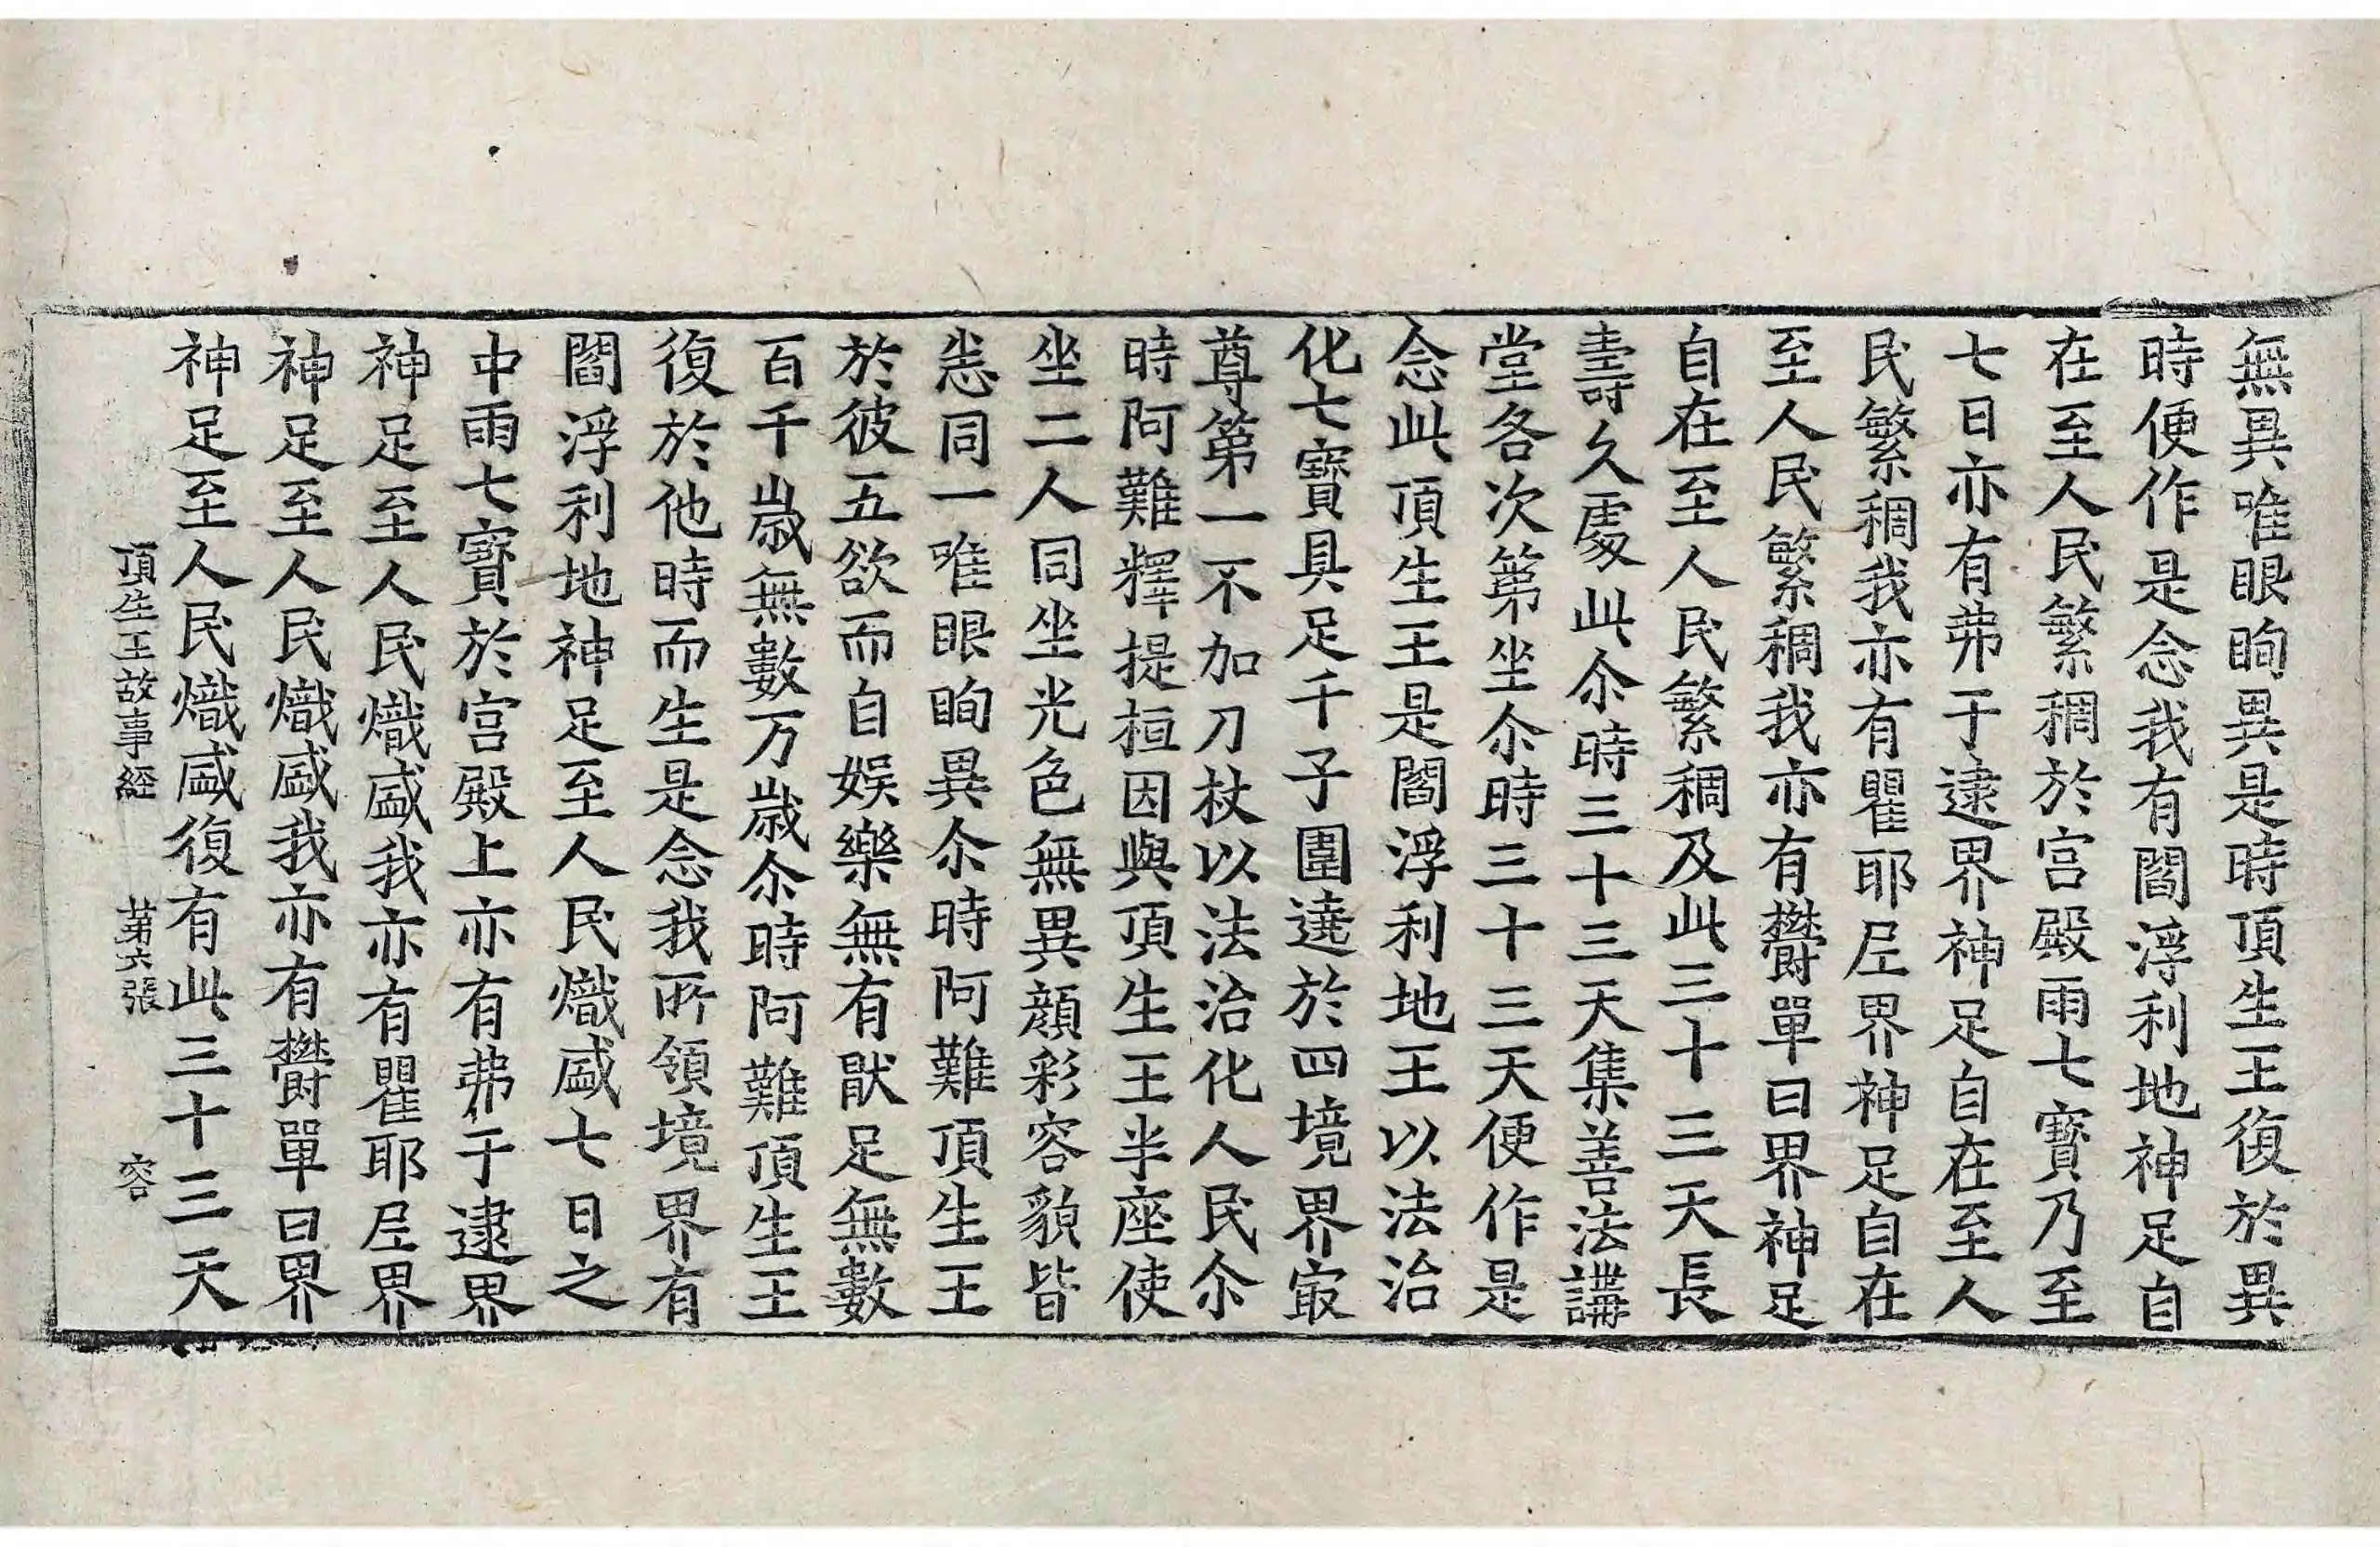 無異唯眼眴異是時頂生王復於異
時便作是念我有閻浮利地神足自
在至人民繁稠於宮殿雨七寶乃至
七日亦有弗于逮界神足自在至人
民繁稠我亦有瞿耶尼界神足自在
至人民繁稠我亦有欝單曰界神足
自在至人民繁稠及此三十三天長
壽久處此尒時三十三天集善法講
堂各次第坐尒時三十三天便作是
念此頂生王是閻浮利地王以法治
化七寶具足千子圍遶於四境界㝡
尊第一不加刀杖以法治化人民尒
時阿難釋提桓因與頂生王半座使
坐二人同坐光色無異顔彩容貌皆
悉同一唯眼眴異尒時阿難頂生王
於彼五欲而自娛樂無有猒足無數
百千歲無數万歲尒時阿難頂生王
復於他時而生是念我所領境界有
閻浮利地神足至人民熾盛七日之
中雨七寶於宮殿上亦有弗于逮界
神足至人民熾盛我亦有瞿耶尼界
神足至人民熾盛我亦有欝單曰界
神足至人民熾盛復有此三十三天
頂生王故事経 第六張 容